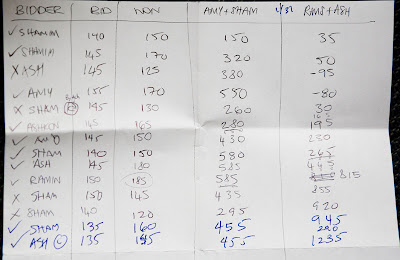 BIDDER BID WON AMY+SHAM RAMS+ASH
✓ SHAMIM 140 150 150 35
✓ SHAMIM 145 170 320 50
X ASH 145 125 380 -95
✓ AMY 155 170 550 -80
X SHAM 145 130 260 30
✓ 145 165 280 195
✓ 145 150 430 230
✓ SHAM 140 150 580 265
✓ ASH 145 180 585 445
✓ RAMIN 150 185 585 815
X SHAM 150 145 435 855
X SHAM 140 120 295 920
✓ SHAM 135 160 455 945
✓ ASH 135 455 1235